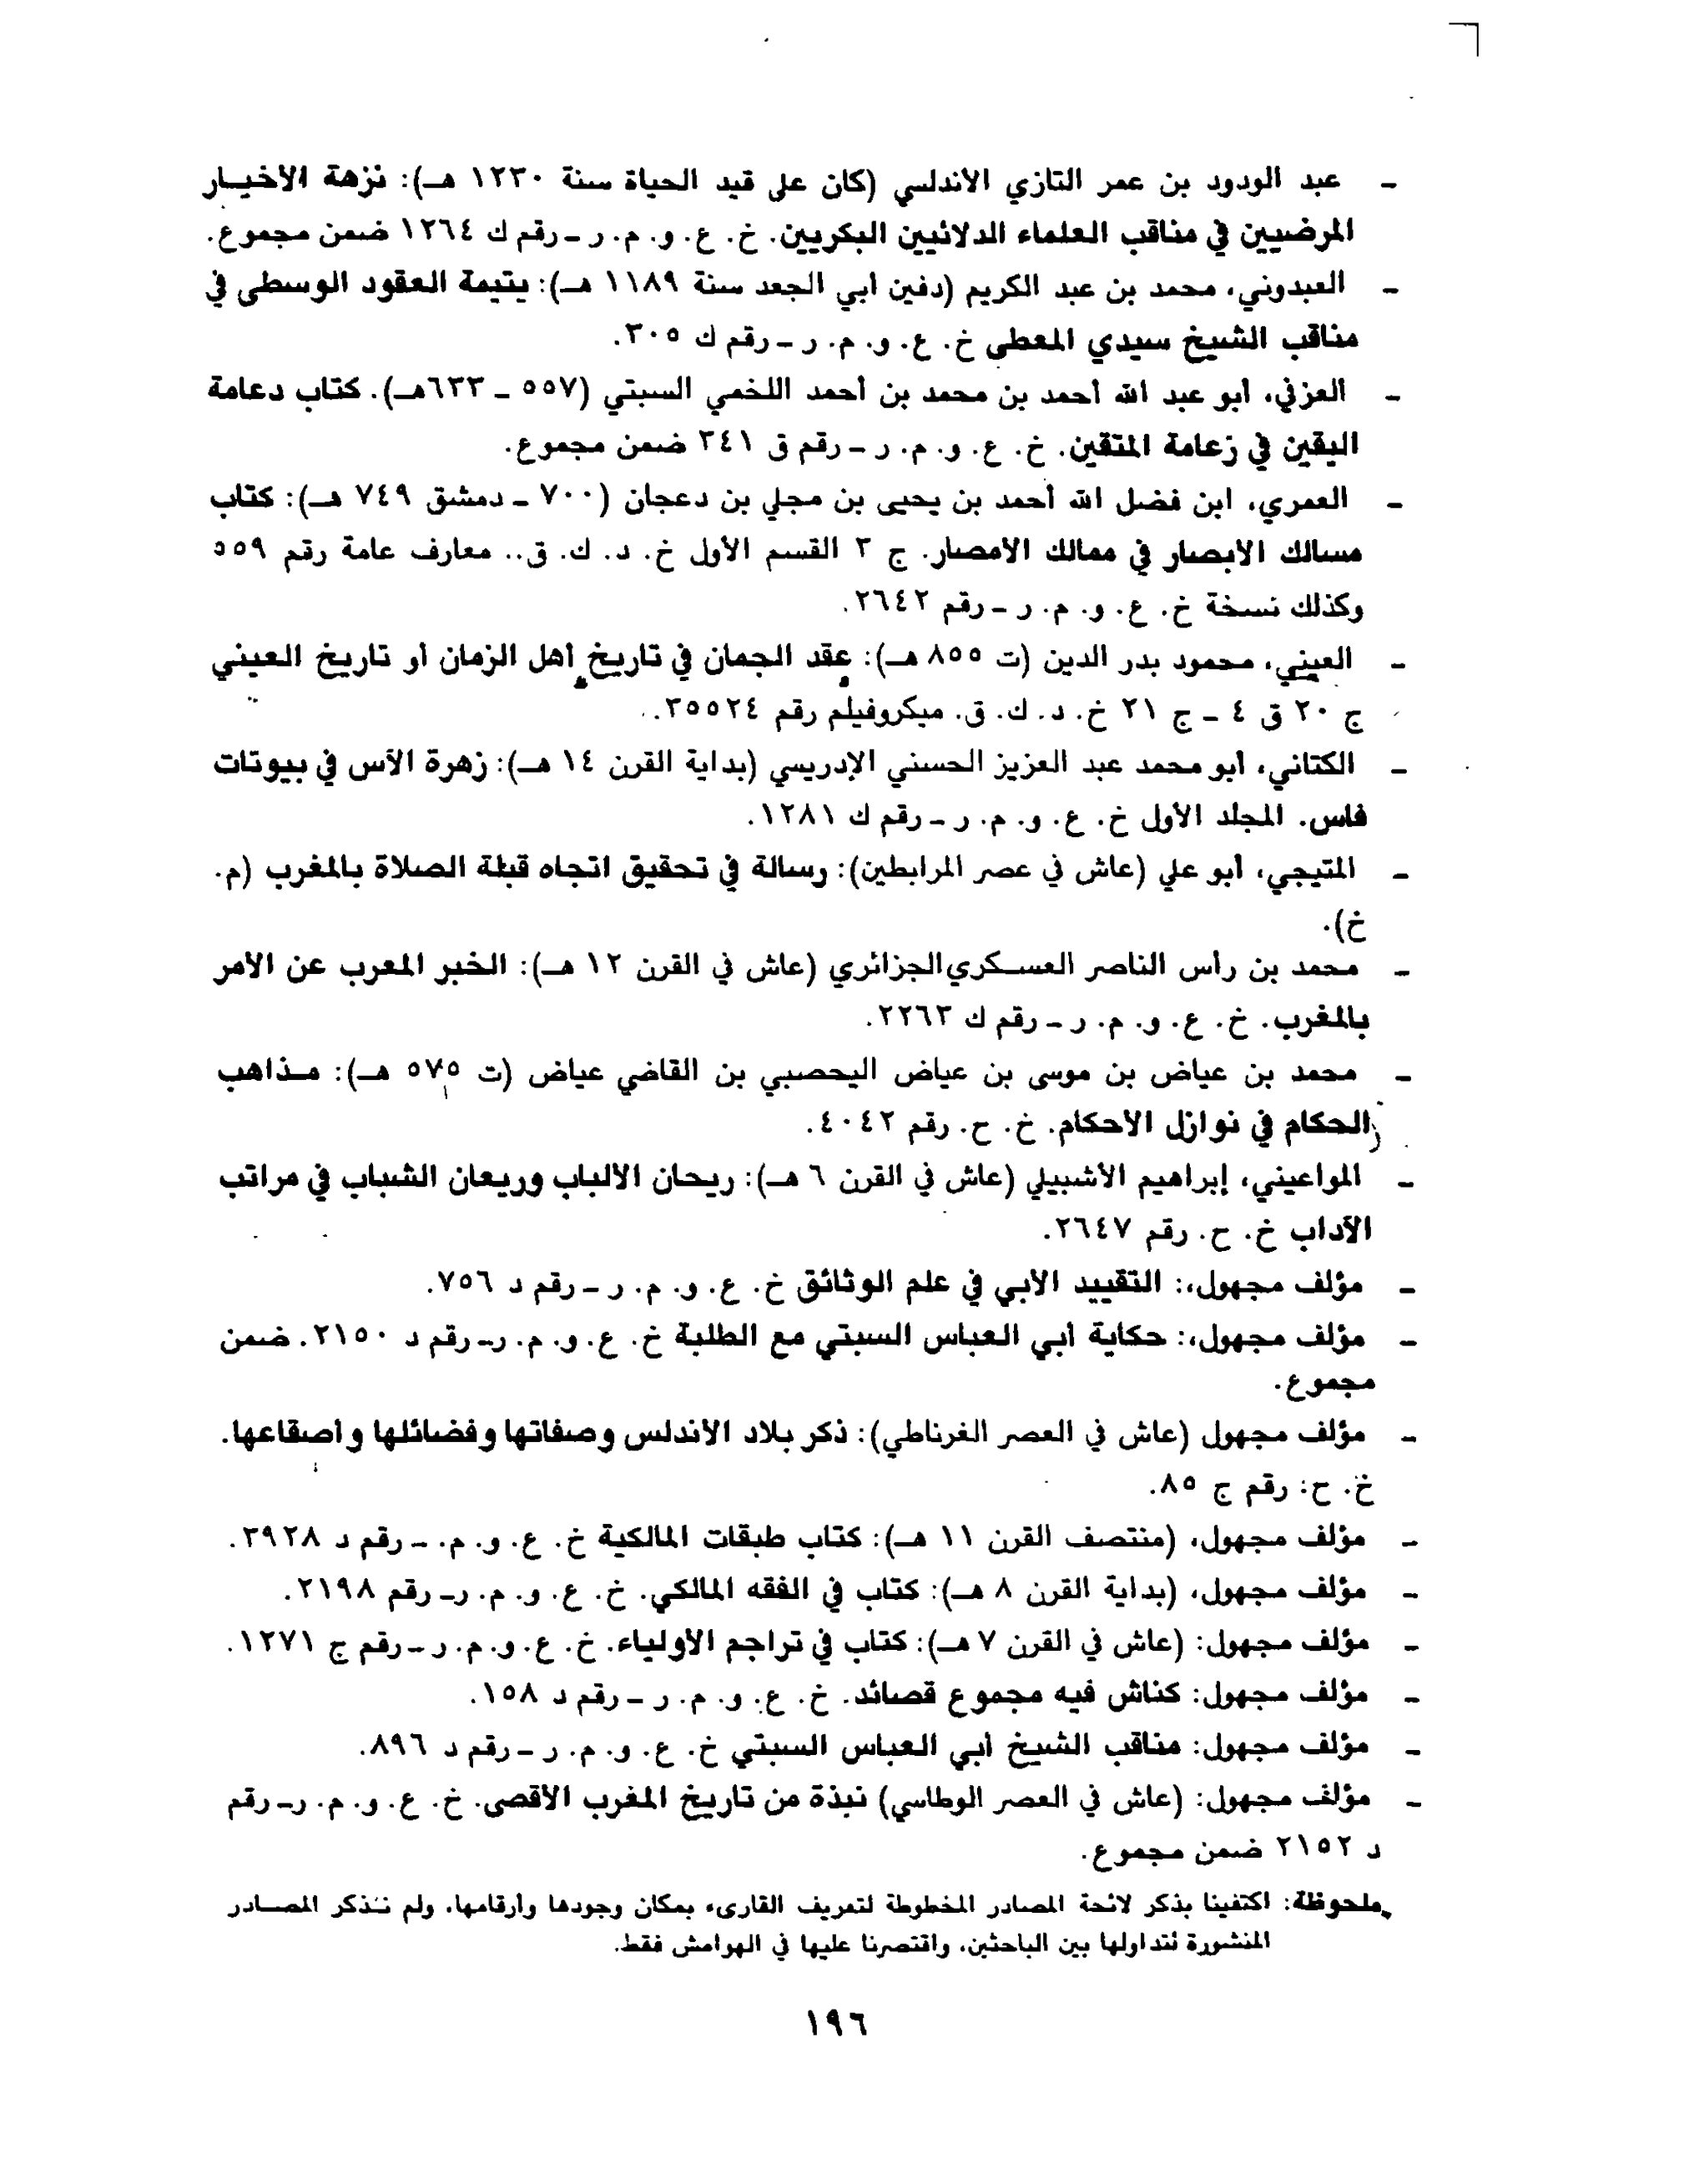 - عبد الودود بن عمر التازي الاندلسي (كان على قيد الحياة سنة ١٢٣٠ هـ): نزهة الاخيـار
المرضيين في مناقب العلماء الدلائيين البكريين. خ. ع. و. م. ر - رقم ك ١٢٦٤ ضمن مجموع.
- العبدوني، محمد بن عبد الكريم (دفين ابي الجعد سنة ١١٨٩ هـ): يتيمة العقود الوسطى في
مناقب الشيخ سيدي المعطي خ. ع. و. م. ر - رقم ك ٣٠٥.
- العزفي، أبو عبد الله أحمد بن محمد بن أحمد اللخمي السبتي (٥٥٧ - ٦٣٣هـ). كتاب دعامة
اليقين في زعامة المتقين. خ. ع. و. م. ر - رقم ق ٣٤١ ضمن مجموع.
- العمري، ابن فضل الله أحمد بن يحيى بن مجلي بن دعجان (٧٠٠ - دمشق ٧٤٩ هـ): كتاب
مسالك الابصار في ممالك الامصار. ج ٣ القسم الأول خ. د. ك. ق.. معارف عامة رقم ٥٥٩
وكذلك نسخة خ. ع. و. م. ر - رقم ٢٦٤٢.
- العيني، محمود بدر الدين (ت ٨٥٥ هـ): عقد الجمان في تاريخ أهل الزمان أو تاريخ العيني
ج ٢٠ ق ٤ - ج ٢١ خ. د. ك. ق. ميكروفيلم رقم ٣٥٥٢٤.
- الكتاني، ابو محمد عبد العزيز الحسني الإدريسي (بداية القرن ١٤ هـ): زهرة الآس في بيوتات
فاس. المجلد الأول خ. ع. و. م. ر - رقم ك ١٢٨١.
- المتيجي، أبو علي (عاش في عصر المرابطين): رسالة في تحقيق اتجاه قبلة الصلاة بالمغرب (م.
خ).
- محمد بن رأس الناصر العسكري الجزائري (عاش في القرن ١٢ هـ): الخبر المعرب عن الأمر
بالمغرب. خ. ع. و. م. ر - رقم ك ٢٢٦٣.
- محمد بن عياض بن موسى بن عياض اليحصبي بن القاضي عياض (ت ٥٧٥ هـ): مـذاهب
الحكام في نوازل الاحكام. خ. ح. رقم ٤٠٤٢.
- المواعيني، إبراهيم الأشبيلي (عاش في القرن ٦ هـ): ريحان الالباب وريعان الشباب في مراتب
الآداب خ. ح. رقم ٢٦٤٧.
- مؤلف مجهول،: التقييد الابي في علم الوثائق خ. ع. و. م. ر - رقم د ٧٥٦.
- مؤلف مجهول،: حكاية أبي العباس السبتي مع الطلبة خ. ع. و. م. ر- رقم د ٢١٥٠. ضمن
مجموع.
- مؤلف مجهول (عاش في العصر الغرناطي): ذكر بلاد الاندلس وصفاتها وفضائلها وأصقاعها.
خ. ح: رقم ج ٨٥.
- مؤلف مجهول، (منتصف القرن ١١ هـ): كتاب طبقات المالكية خ. ع. و. م. - رقم د ٣٩٢٨.
- مؤلف مجهول، (بداية القرن ٨ هـ): كتاب في الفقه المالكي. خ. ع. و. م. ر- رقم ٢١٩٨.
- مؤلف مجهول: (عاش في القرن ٧ هـ): كتاب في تراجم الأولياء. خ. ع. و. م. ر - رقم ج ١٢٧١.
- مؤلف مجهول: كناش فيه مجموع قصائد. خ. ع. و. م. ر - رقم د ١٥٨.
- مؤلف مجهول: مناقب الشيخ أبي العباس السبتي خ. ع. و. م. ر - رقم د ٨٩٦.
- مؤلف مجهول: (عاش في العصر الوطاسي) نبذة من تاريخ المغرب الأقصى. خ. ع. و. م. ر- رقم
د ٢١٥٢ ضمن مجموع.
ملحوظة: اكتفينا بذكر لائحة المصادر المخطوطة لتعريف القارىء بمكان وجودها وأرقامها، ولم نـذكر المصـادر
المنشورة لتداولها بين الباحثين، واقتصرنا عليها في الهوامش فقط.
١٩٦